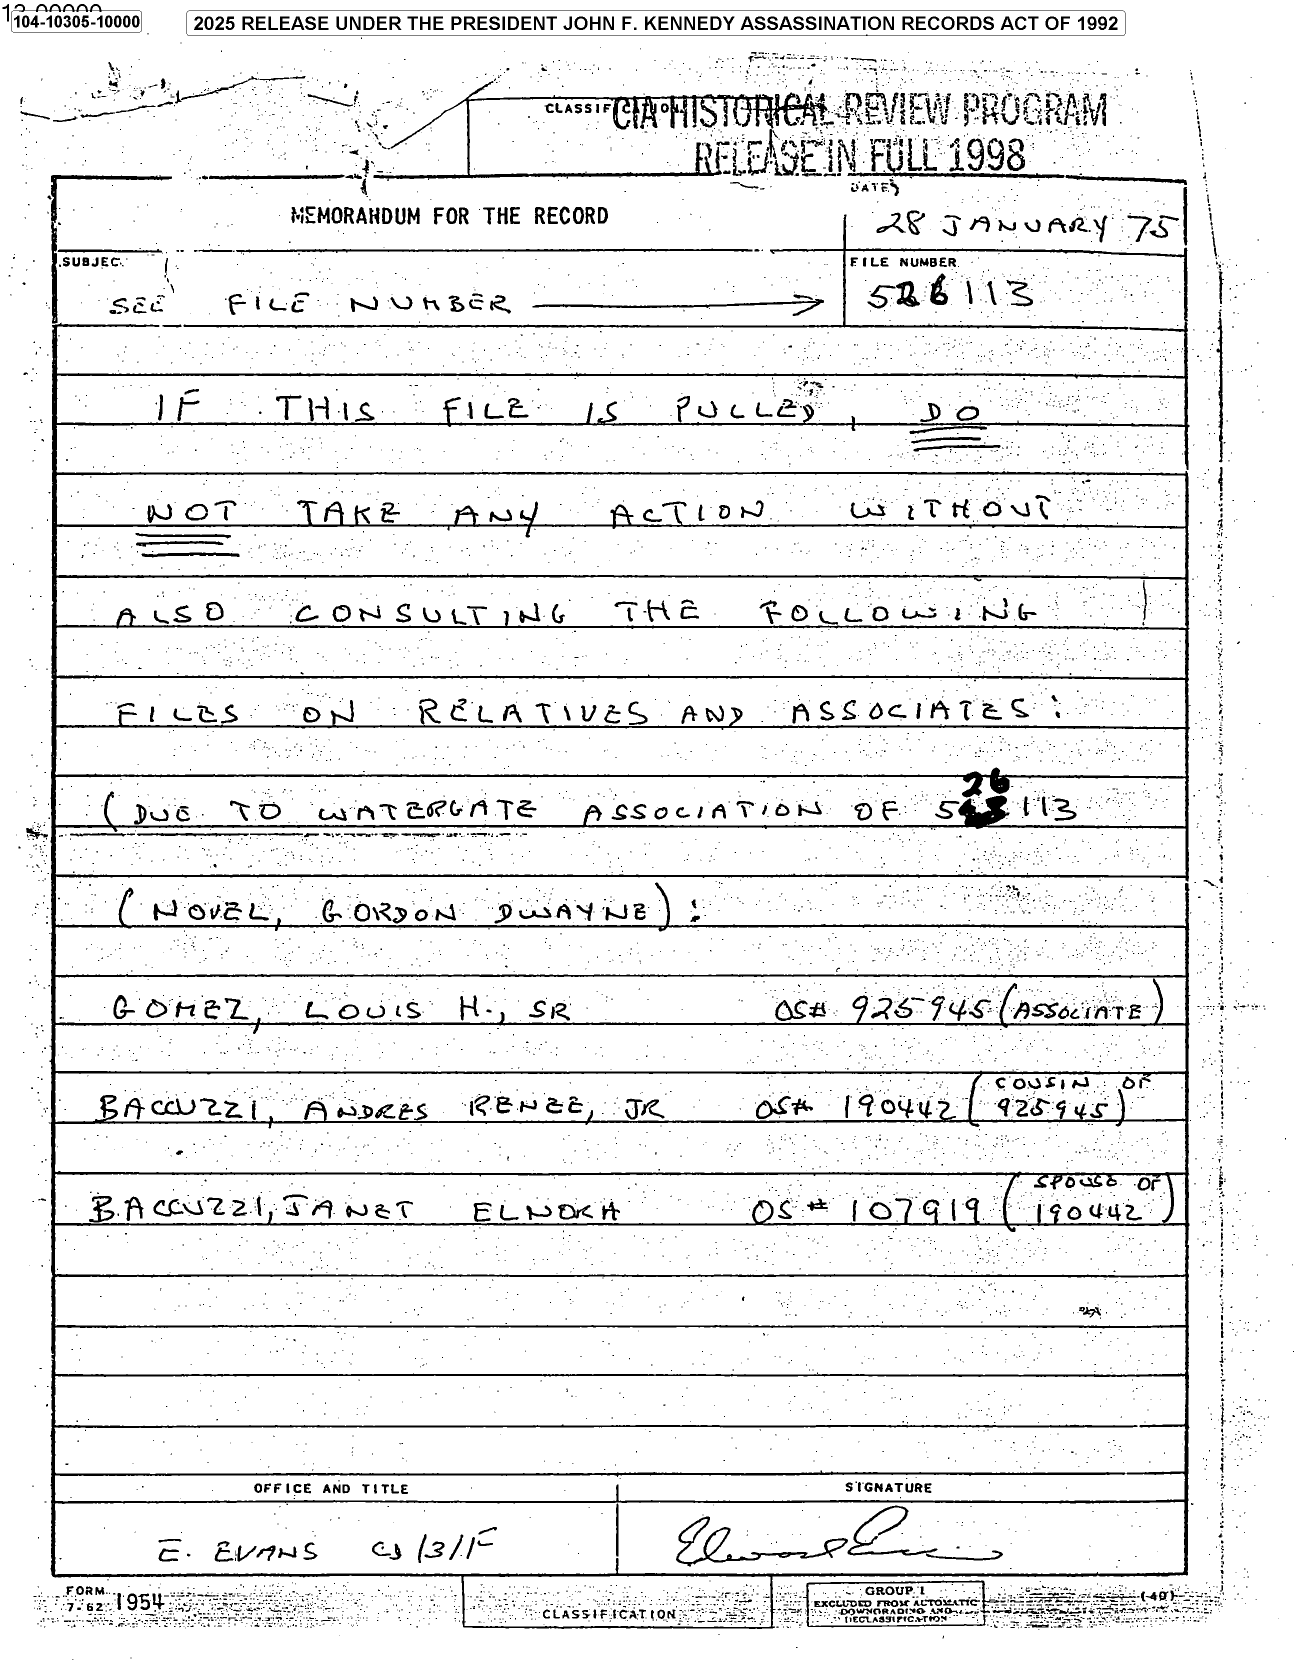 13-00000
104-10305-10000
2025 RELEASE UNDER THE PRESIDENT JOHN F. KENNEDY ASSASSINATION RECORDS ACT OF 1992
CLASSIFICATION
CIA HISTORICAL REVIEW PROGRAM
RELEASE IN FULL 1998
MEMORANDUM FOR THE RECORD
DATE
28 JANUARY 75
SUBJEC
SEE FILE NUMBER
FILE NUMBER
526113
IF THIS FILE IS PULLED, DO
NOT TAKE ANY ACTION WITHOUT
ALSO CONSULTING THE FOLLOWING
FILES ON RELATIVES AND ASSOCIATES:
(DUE TO WATERGATE ASSOCIATION OF 526113
(NOVEL, GORDON DWAYNE):
GOMEZ, LOUIS H., SR OS# 925945 (ASSOCIATE)
BACCUZZI, ANDRES RENEE, JR OS# 190442 (COUSIN OF 925945)
BACCUZZI, JANET ELNORA OS# 107919 (SPOUSE OF 190442)
OFFICE AND TITLE
SIGNATURE
E. EVANS
FORM
7-62 1954
CLASSIFICATION
GROUP 1
EXCLUDED FROM AUTOMATIC
DOWNGRADING AND
DECLASSIFICATION
(40)